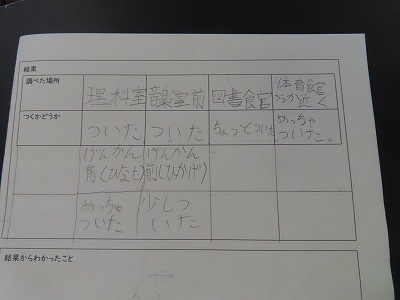 結果
調べた場所
理科室
音楽室前
図書館
体育館
ろうか近く
つくかどうか
ついた
ついた
ちょっとついた
めっちゃ
ついた。
げんかん
前(ひなた)
げんかん
前(ひかげ)
めっちゃ
ついた
少しつ
いた
結果からわかったこと